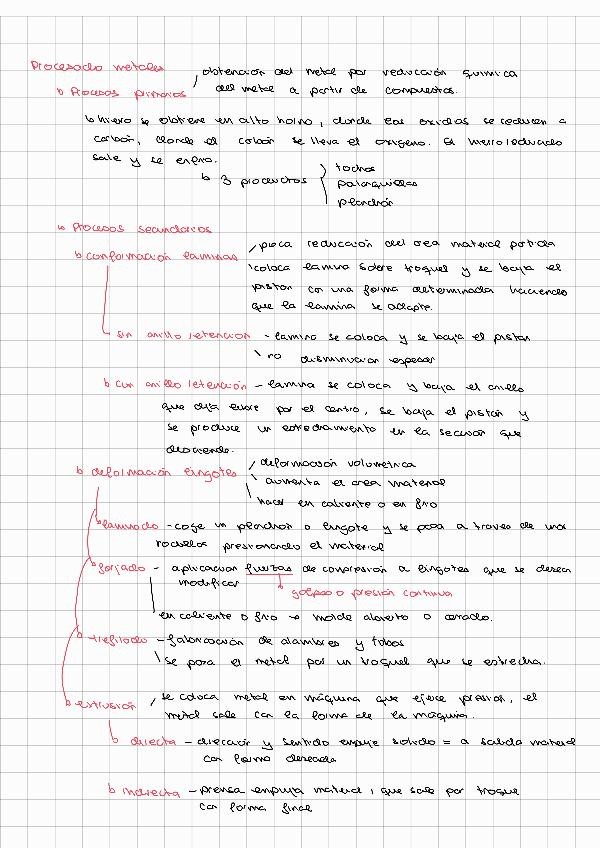 Procesado metales
obtención del metal por reducción química
↳ Procesos primarios
del metal a partir de compuestos.
↳ hierro se obtiene en alto horno, donde los oxidos se reducen a
carbón, donde el carbón se lleva el oxigeno. El hierro reducido
sale y se enfría.
↳ 3 productos
tochos
palanquillas
planchón
↳ Procesos secundarios
↳ conformación laminas
poca reducción del area material partida
coloca lamina sobre troquel y se baja el
piston con una forma determinada haciendo
que la lamina se adapte.
sin anillo retención - lamina se coloca y se baja el piston
no disminucion espesor
↳ con anillo retención - lamina se coloca y baja el anillo
que deja libre por el centro, se baja el pistón y
se produce un estrechamiento en la seccion que
desciende.
↳ deformación lingotes
deformación volumetrica
aumenta el area material
hacer en caliente o en frio
↳ laminado - coge un planchon o lingote y se pasa a traves de unos
rodillos presionando el material
↳ forjado - aplicacion fuerzas de compresión a lingotes que se desean
modificar
↳ golpeo o presión continua
en caliente o frio → molde abierto o cerrado.
↳ trefilado - fabricación de alambres y tubos
se pasa el metal por un troquel que se estrecha.
↳ extrusión
se coloca metal en máquina que ejerce presion, el
metal sale con la forma de la máquina.
↳ directa - direccion y sentido empuje solido = a salida material
con forma deseada
↳ indirecta - prensa empuja material, que sale por troquel
con forma final